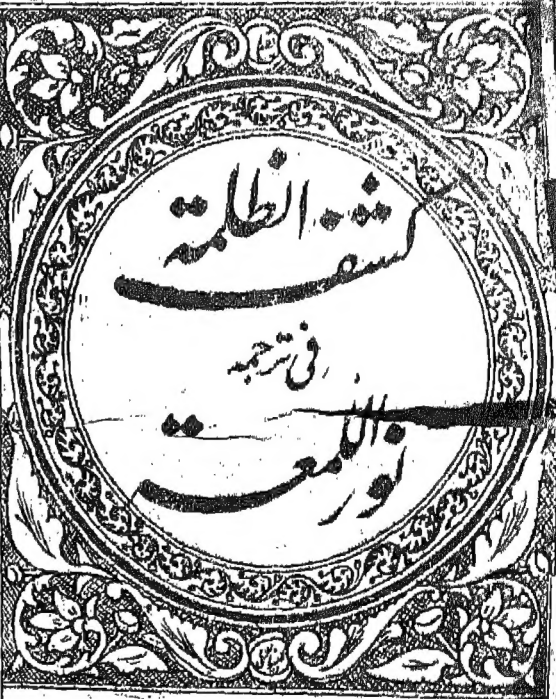 كشف الظلمة
فی ترجمہ
نور اللمعة